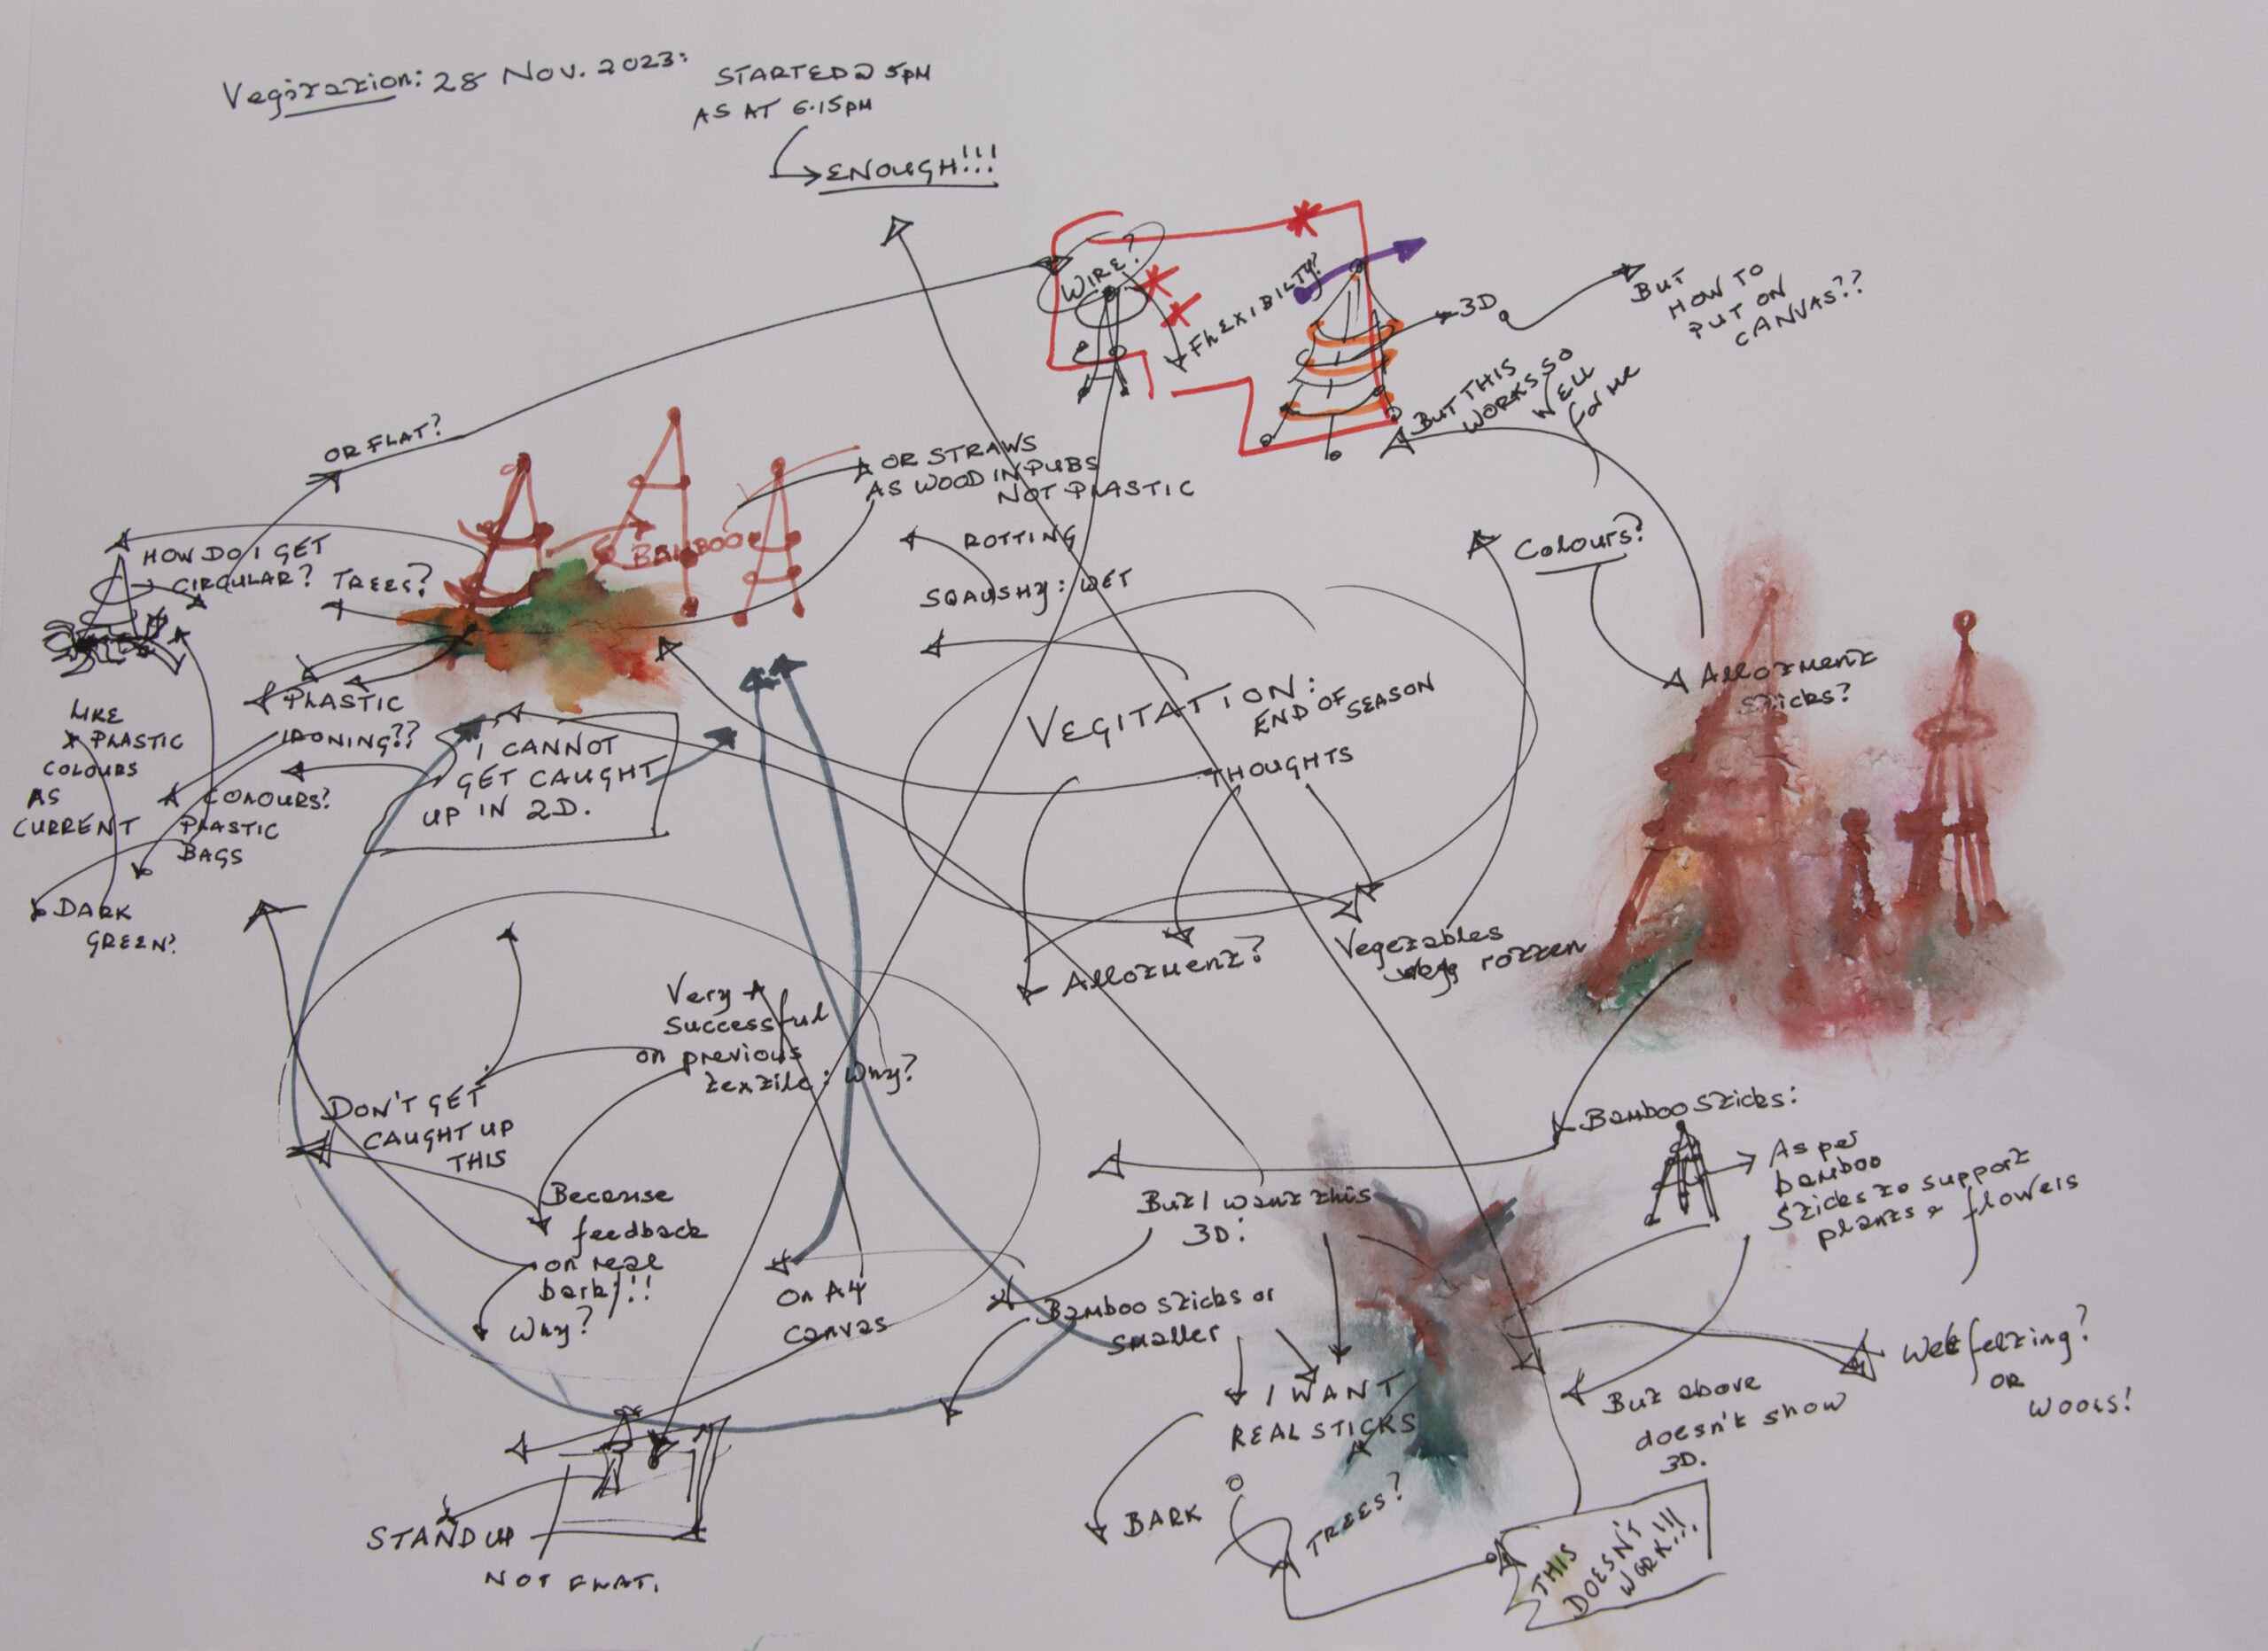 Vegitation: 28 Nov. 2023:
STARTED @ 5PM
AS AT 6.15PM
ENOUGH!!!
WIRE?
FLEXIBILTY?
3D
BUT
HOW TO
PUT ON
CANVAS??
BUT THIS
WORKS SO
WELL
for me
OR FLAT?
OR STRAWS
AS WOOD IN PUBS
NOT PLASTIC
BAMBOO
HOW DO I GET
CIRCULAR?
TREES?
ROTTING
SQAUSHY: WET
Colours?
Allotment
Sticks?
PLASTIC
IRONING??
COLOURS?
PLASTIC
BAGS
LIKE
PLASTIC
COLOURS
AS
CURRENT
DARK
GREEN?
I CANNOT
GET CAUGHT
UP IN 2D.
VEGITATION:
END OF SEASON
THOUGHTS
Allotment?
Vegetables
rotten
Very
successful
on previous
textile: Why?
DON'T GET
CAUGHT UP
THIS
Because
feedback
on real
bark!!!
Why?
On A4
canvas
But I want this
3D:
Bamboo sticks or
smaller
I WANT
REAL STICKS
BARK
TREES?
Bamboo sticks:
As per
bamboo
sticks to support
plants & flowers
Wet felting?
OR
WOOLS!
But above
doesn't show
3D.
THIS
DOESN'T
WORK!!!
STAND UP
NOT FLAT.